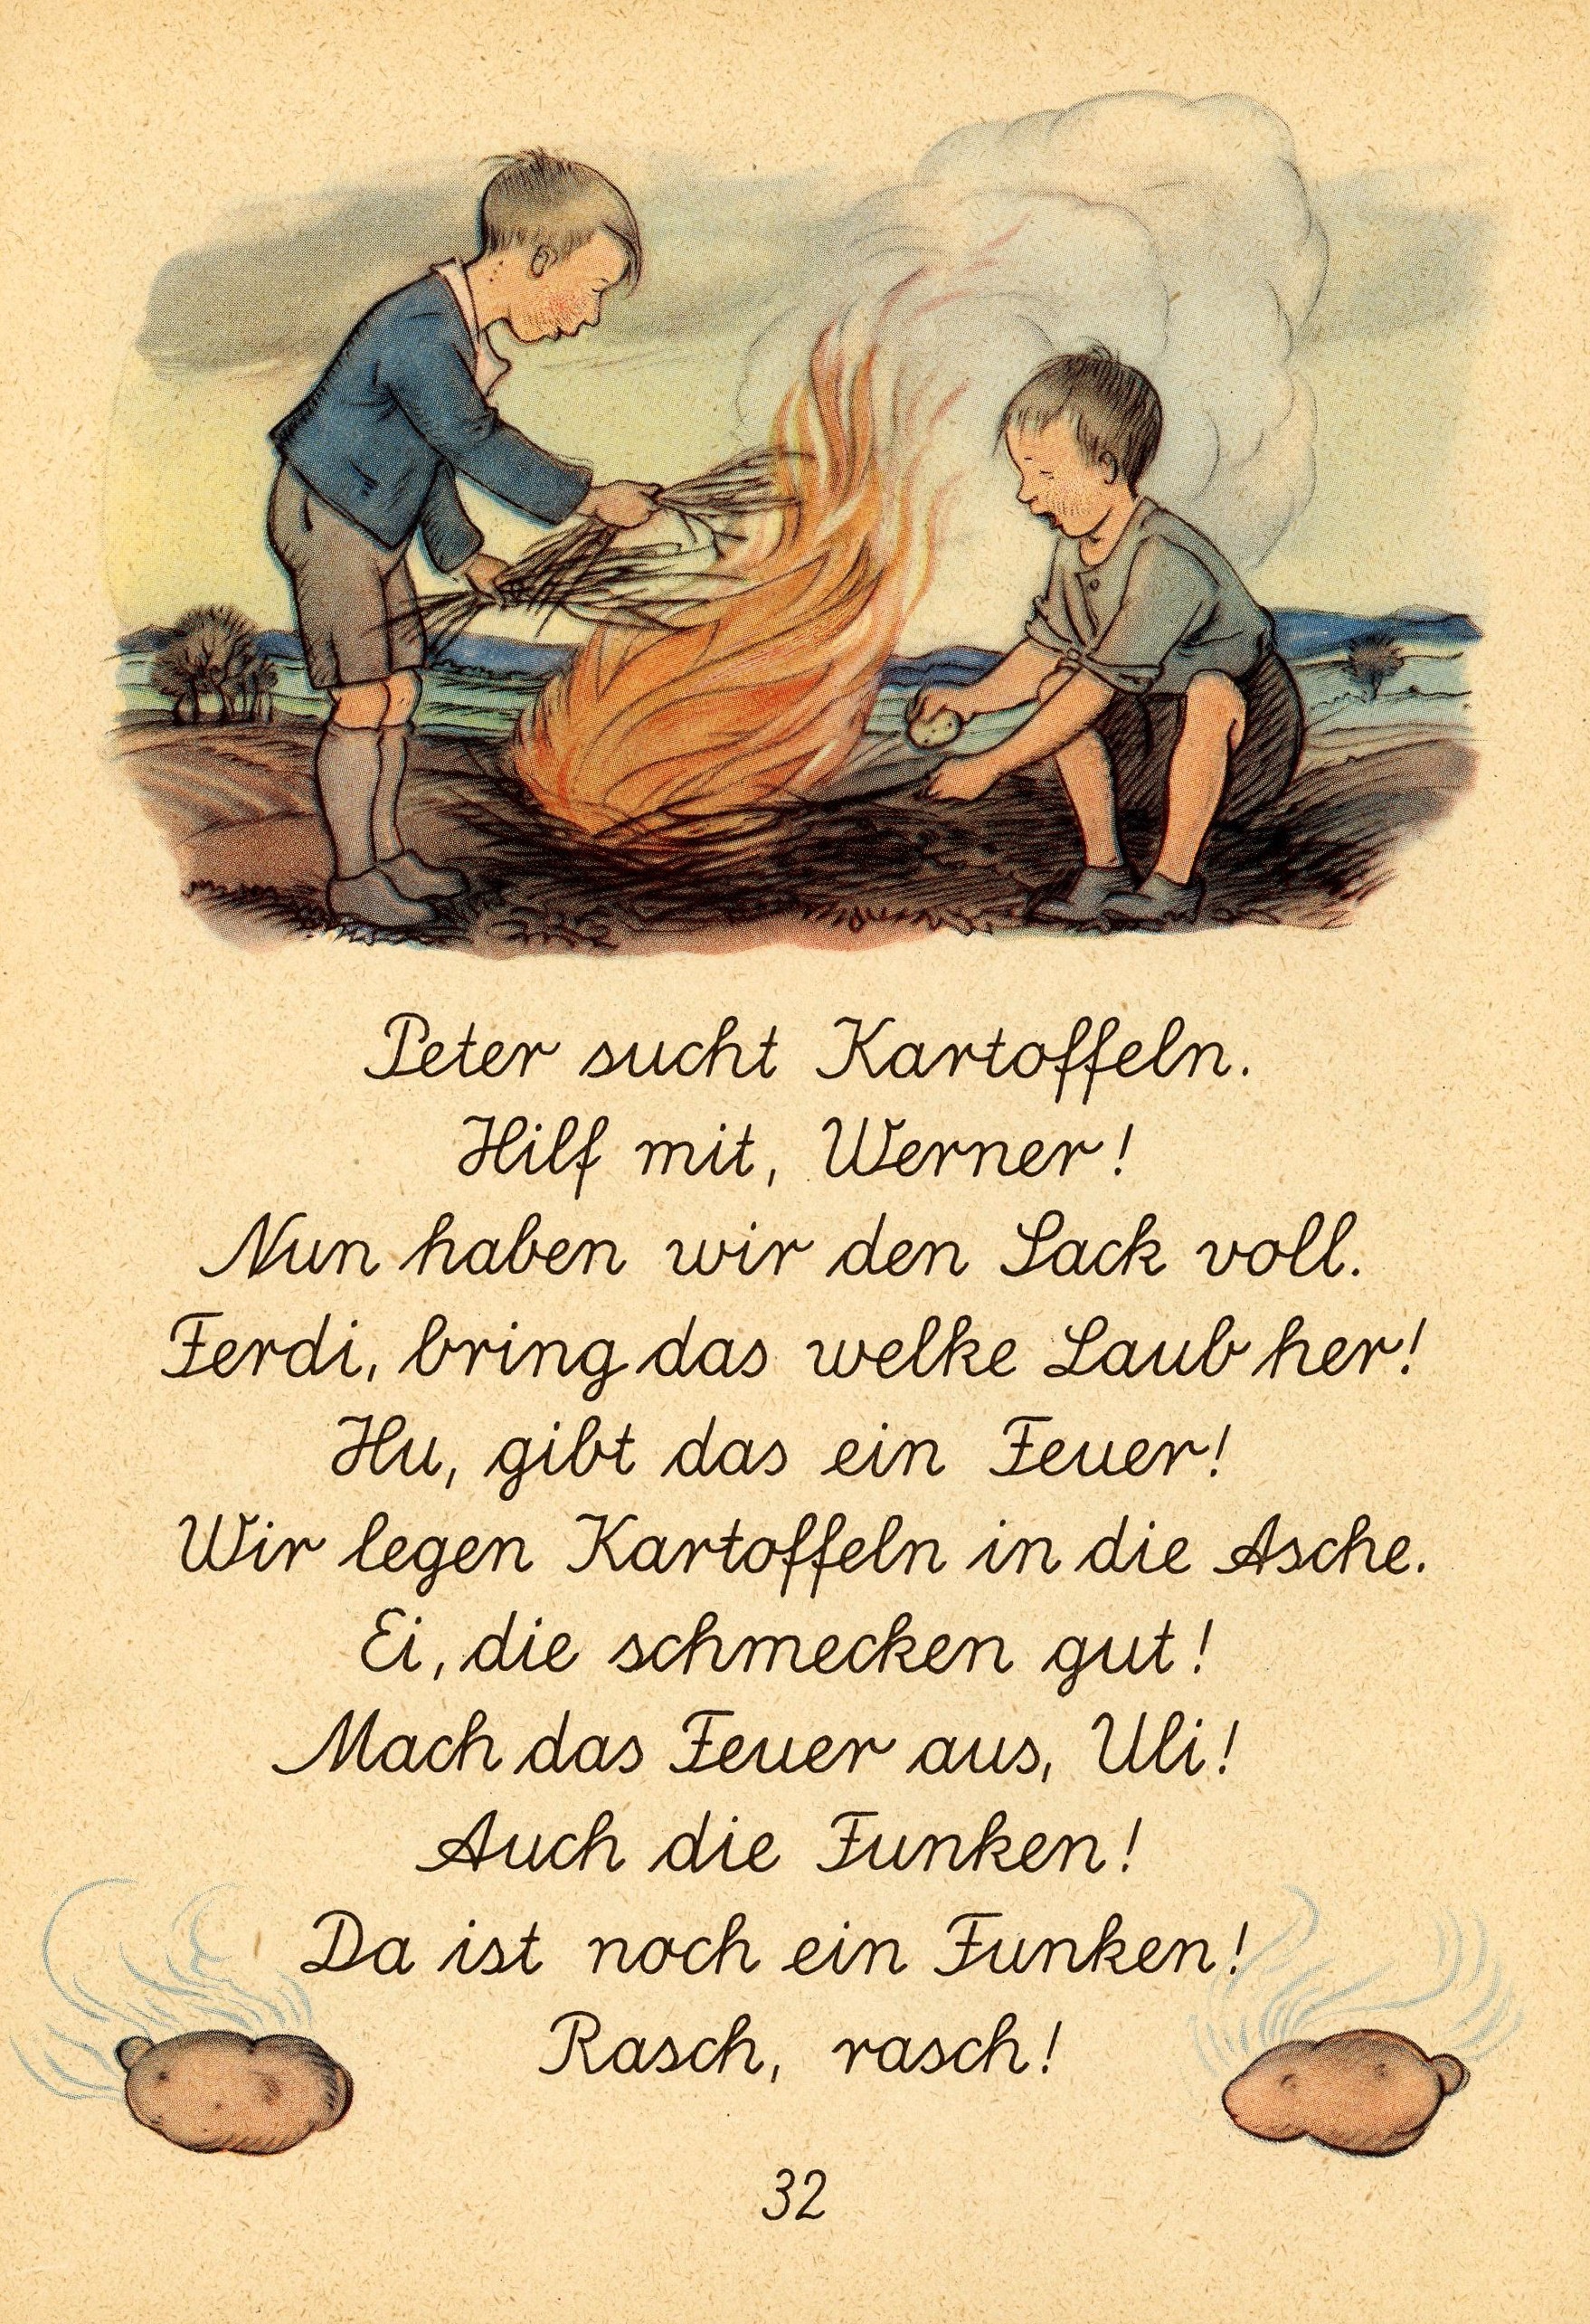 Peter sucht Kartoffeln.
Hilf mit, Werner!
Nun haben wir den Sack voll.
Ferdi, bring das welke Laub her!
Hu, gibt das ein Feuer!
Wir legen Kartoffeln in die Asche.
Ei, die schmecken gut!
Mach das Feuer aus, Uli!
Auch die Funken!
Da ist noch ein Funken!
Rasch, rasch!
32